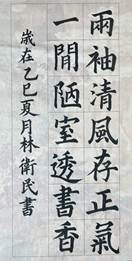 兩袖清風存正氣
一閒陋室透書香
歲在乙巳夏月林衛民書